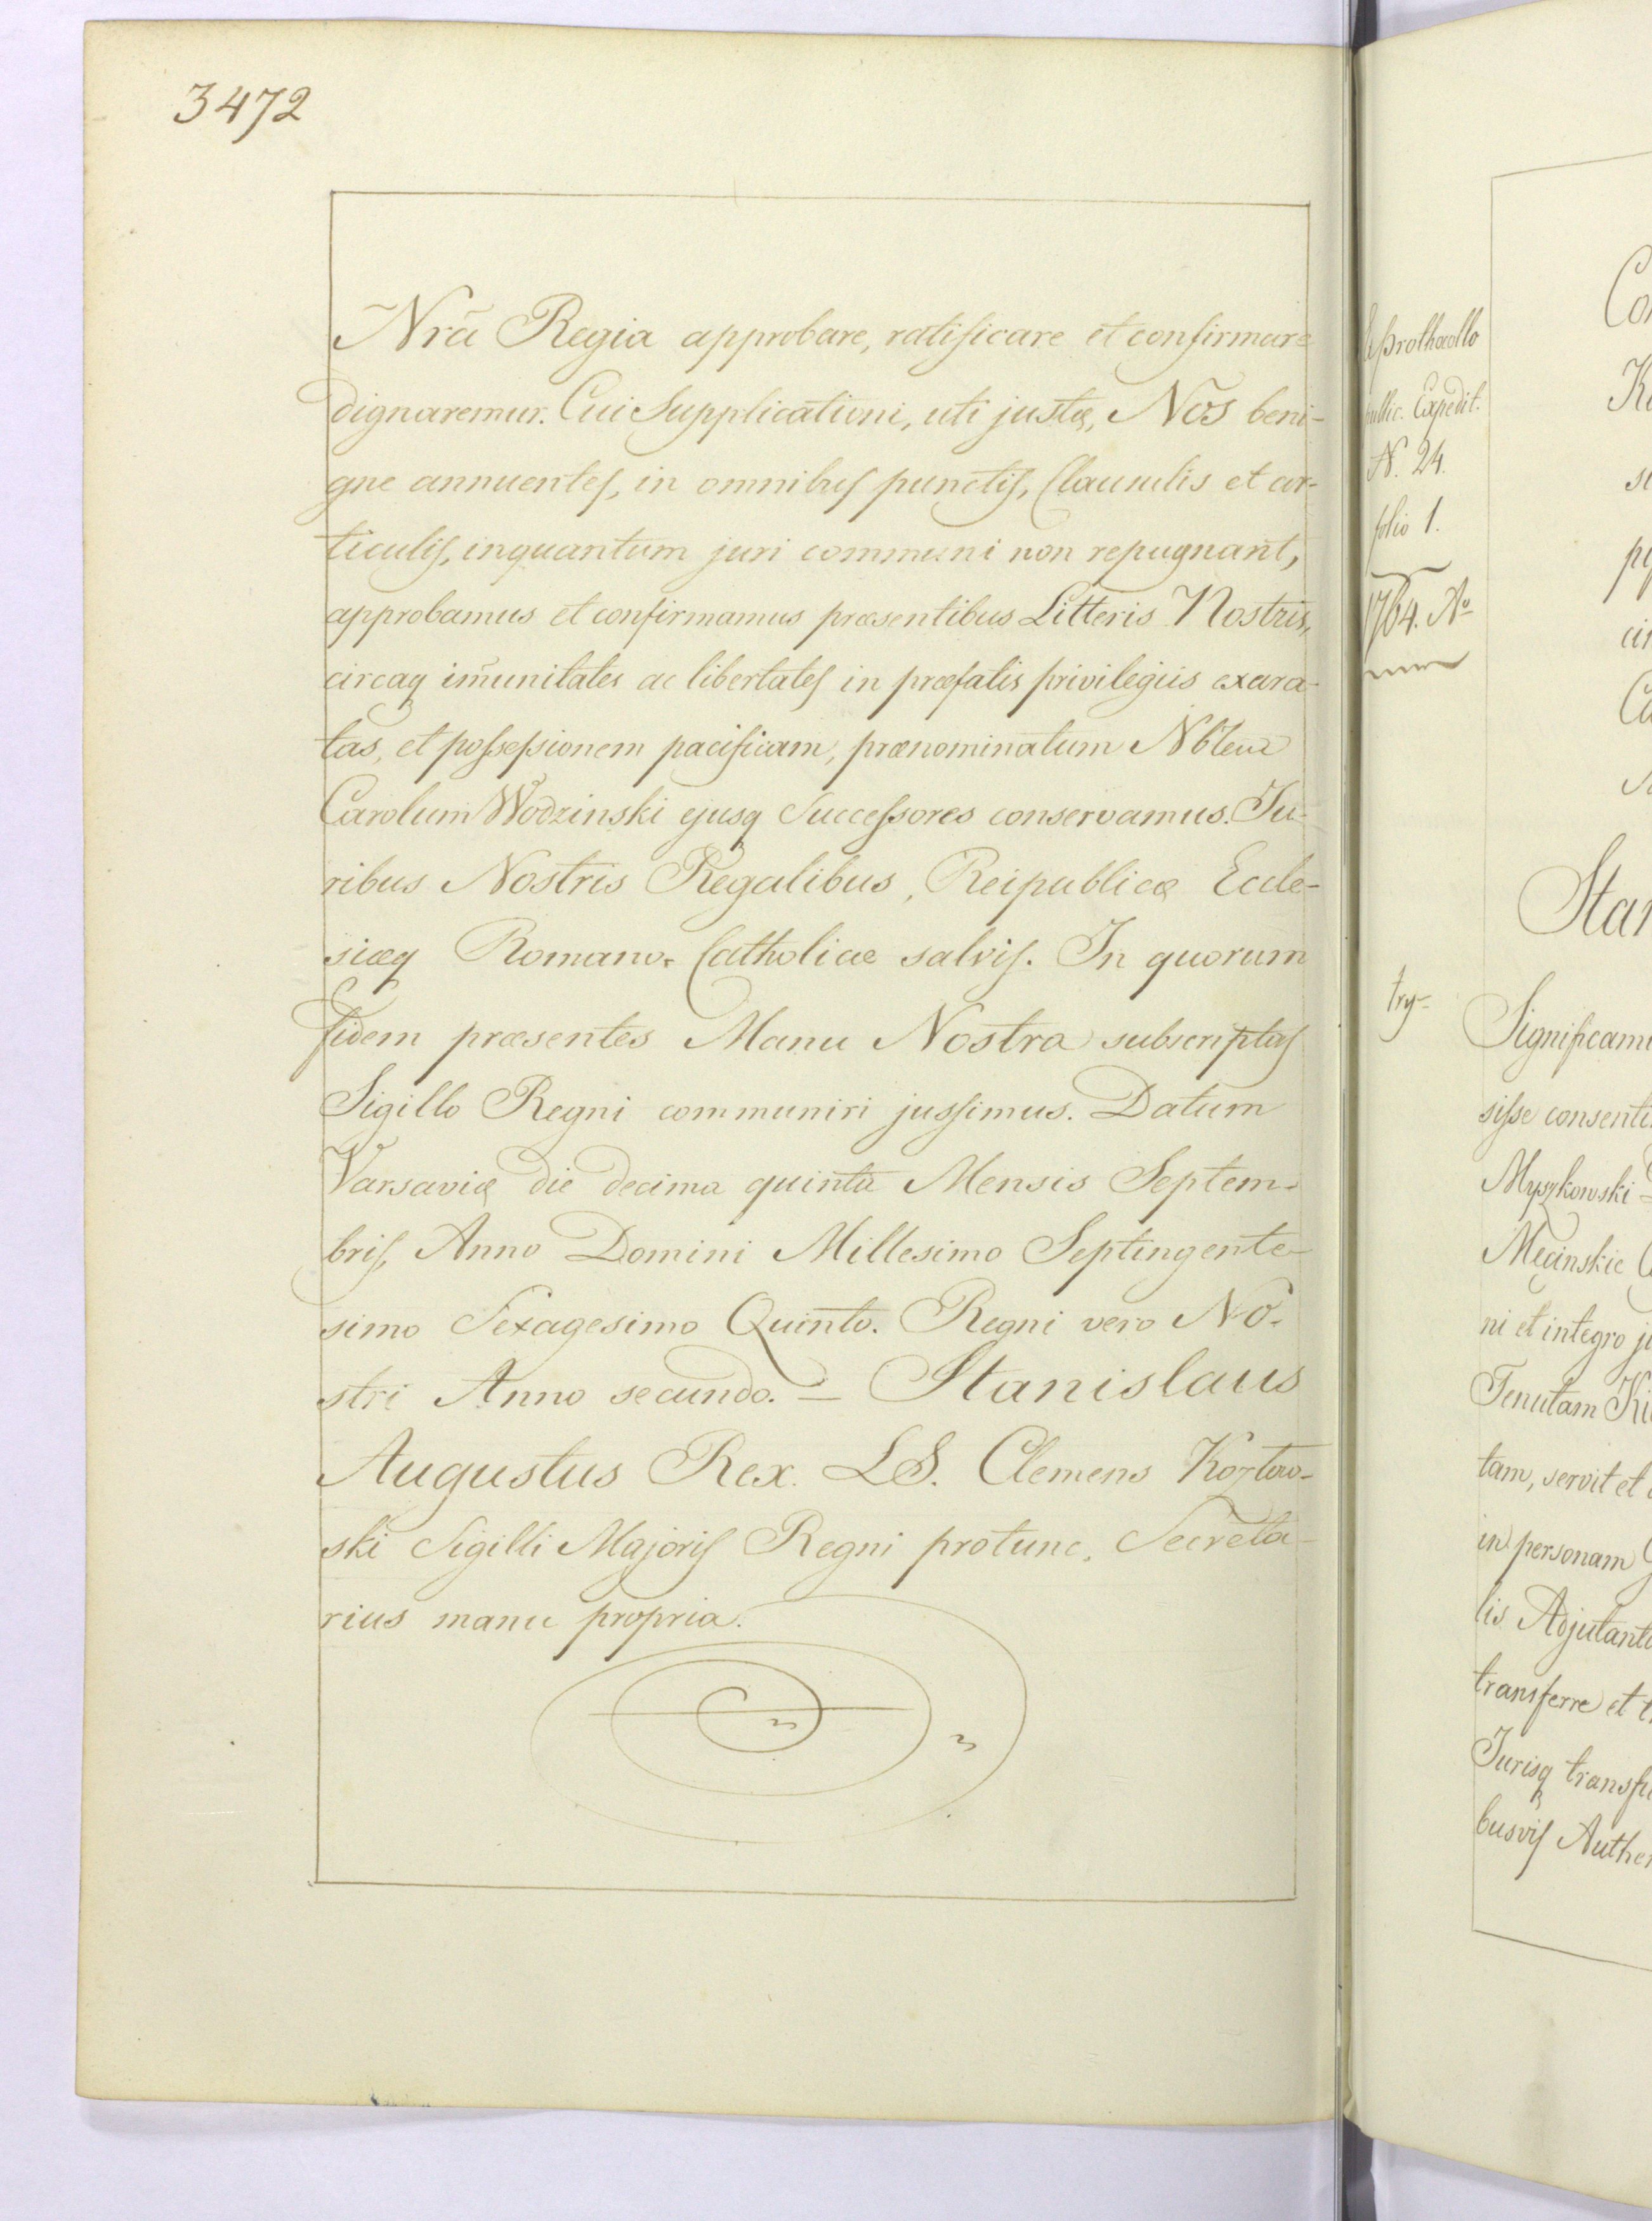 3472
Nrã Regia approbare, ratificare et confirmare
dignaremur. Cui Supplicationi, uti justæ, Nos beni-
gne annuentes, in omnibus punctis, Clausulis et ar-
ticulis, inquantum juri communi non repugnant,
approbamus et confirmamus præsentibus Litteris Nostris,
circaq im̃unitates ac libertates in præfatis privilegiis exara-
tas, et possessionem pacificam, prænominatum
Carolum Wodzinski ejusq Successores conservamus. Ju-
ribus Nostris Regalibus, Reipublicæ Eccle-
siæq Romano-Catholicæ salvis. In quorum
fidem præsentes Manu Nostra subscriptas
Sigillo Regni communiri jussimus. Datum
Varsaviæ die decima quinta Mensis Septem-
bris, Anno Domini Millesimo Septingente-
simo Sexagesimo Quinto. Regni vero No-
stri Anno secundo. — Stanislaus
Augustus Rex. LS. Clemens Koztow-
ski Sigilli Majoris Regni protunc, Secreta-
rius manu propria.
Expedit.
N. 24.
folio 1.
1764. Aº
try-
Co
K
Ca
Star
Significam
sisse consenti
Myszkowski
Męcinskie
ni et integro ju
Tenutam Ki
tam, servit et
in personam G
lis Adjutant
transferre et t
Jurisq transfu
busvis Authen